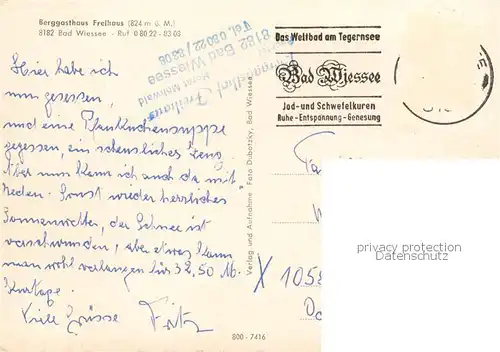 Berggasthaus Freihaus (824 m ü. M.)
8182 Bad Wiessee - Ruf 0 80 22 - 83 03
Berggasthof Freihaus
Horst Mohwald
8182 Bad Wiessee
Tel. 08022 / 8308
Das Weltbad am Tegernsee
Bad Wiessee
Jod- und Schwefelkuren
Ruhe-Entspannung-Genesung
Hier habe ich
nun gesessen,
und eine Pfannkuchensuppe
gegessen, ein scheussliches Zeug.
Aber nun kann ich auch da mit
reden. Sonst wieder herrliches
Sonnenwetter, der Schnee ist
verschwunden, aber etwas kann
man wohl verlangen für 32,50 M.
Kurtaxe.
Viele Grüsse Fritz
Verlag und Aufnahme Foto Dubotzky, Bad Wiessee
800 - 7416
X 105
privacy protection
Datenschutz